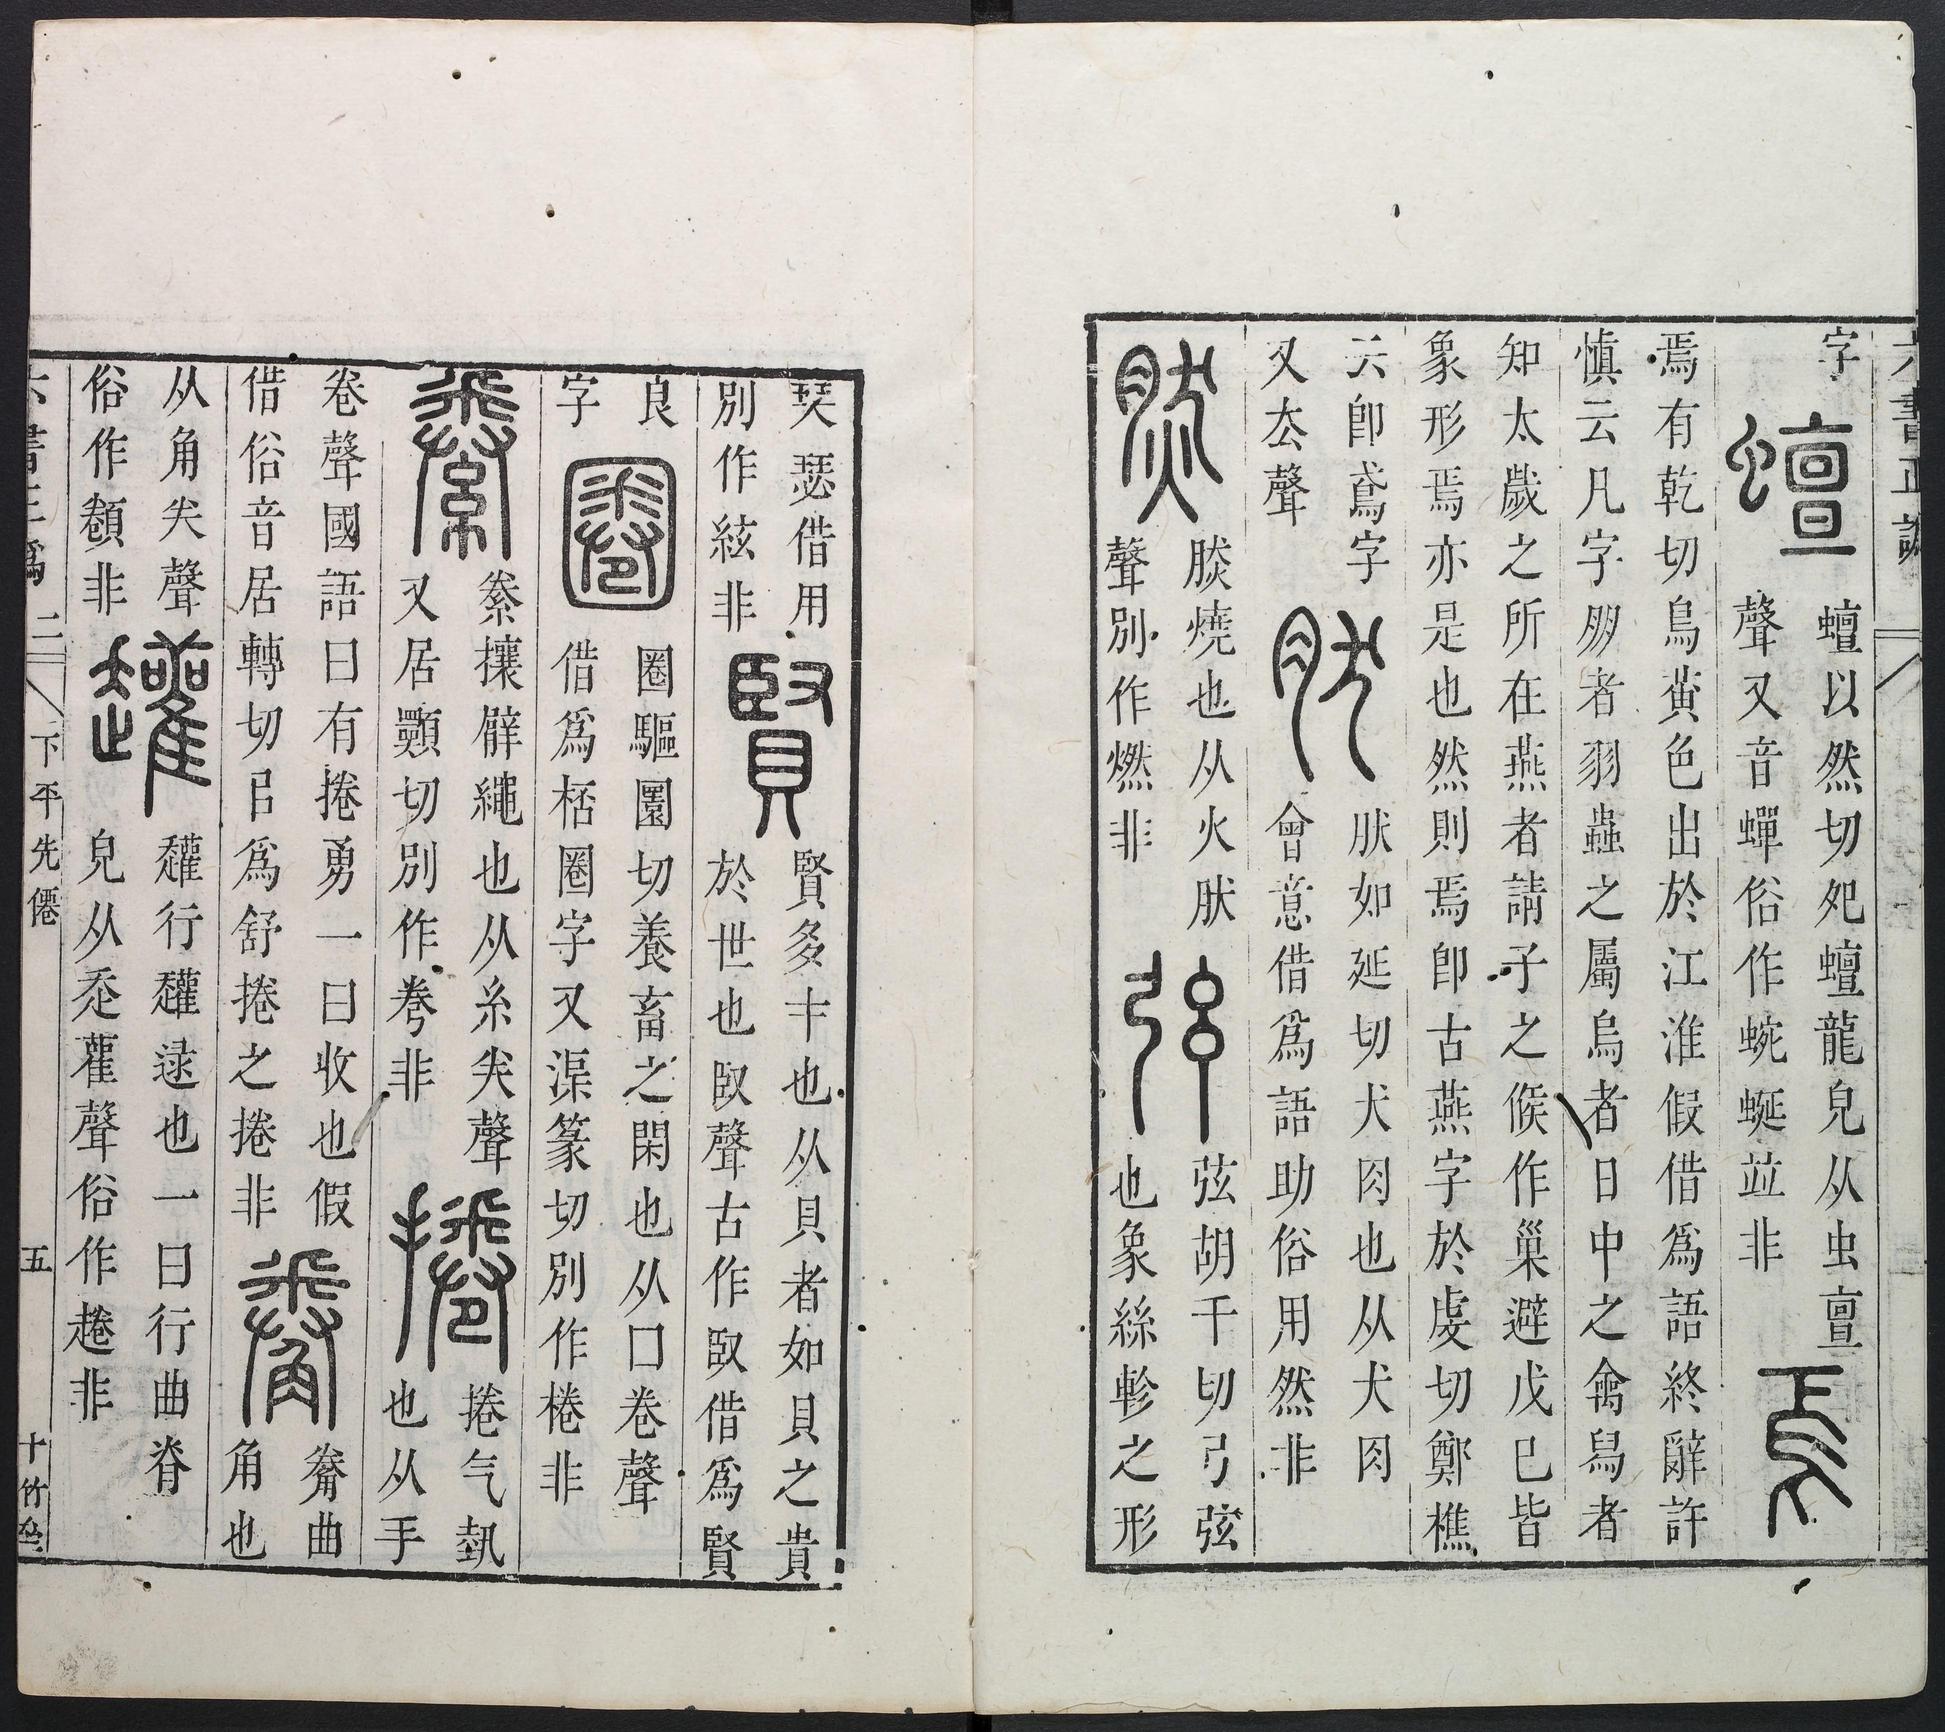 六書正譌
字
蟺
蟺以然切夗蟺龍皃从虫亶
聲又音蟬俗作蜿蜒竝非
焉
焉有乾切鳥黄色出於江淮假借爲語終辭許
愼云凡字朋者羽蟲之屬烏者日中之禽舄者
知太歲之所在燕者請子之候作巢避戊巳皆
象形焉亦是也然則焉卽古燕字於虔切鄭樵
云卽鳶字
又厺聲
肰
肰如延切犬肉也从犬肉
會意借爲語助俗用然非
然
燃燒也从火肰
聲別作燃非
弦
弦胡千切弓弦
也象絲軫之形
琹瑟借用
別作絃非
賢
賢多才也从貝者如貝之貴
於世也臤聲古作臤借爲賢
良
字
圈
圈驅圓切養畜之閑也从囗卷聲
借爲桰圈字又渠篆切別作棬非
絭
絭攘臂繩也从糸𢍏聲
又居顗切別作帣非
捲
捲气埶
也从手
卷聲國語曰有捲勇一曰收也假
借俗音居轉切㠯爲舒捲之捲非
觠
觠曲
角也
从角𢍏聲
俗作䫔非
趯
趯行趯逯也一曰行曲脊
皃从走雚聲俗作趢非
六書正譌 二
下平先僊
五
十竹